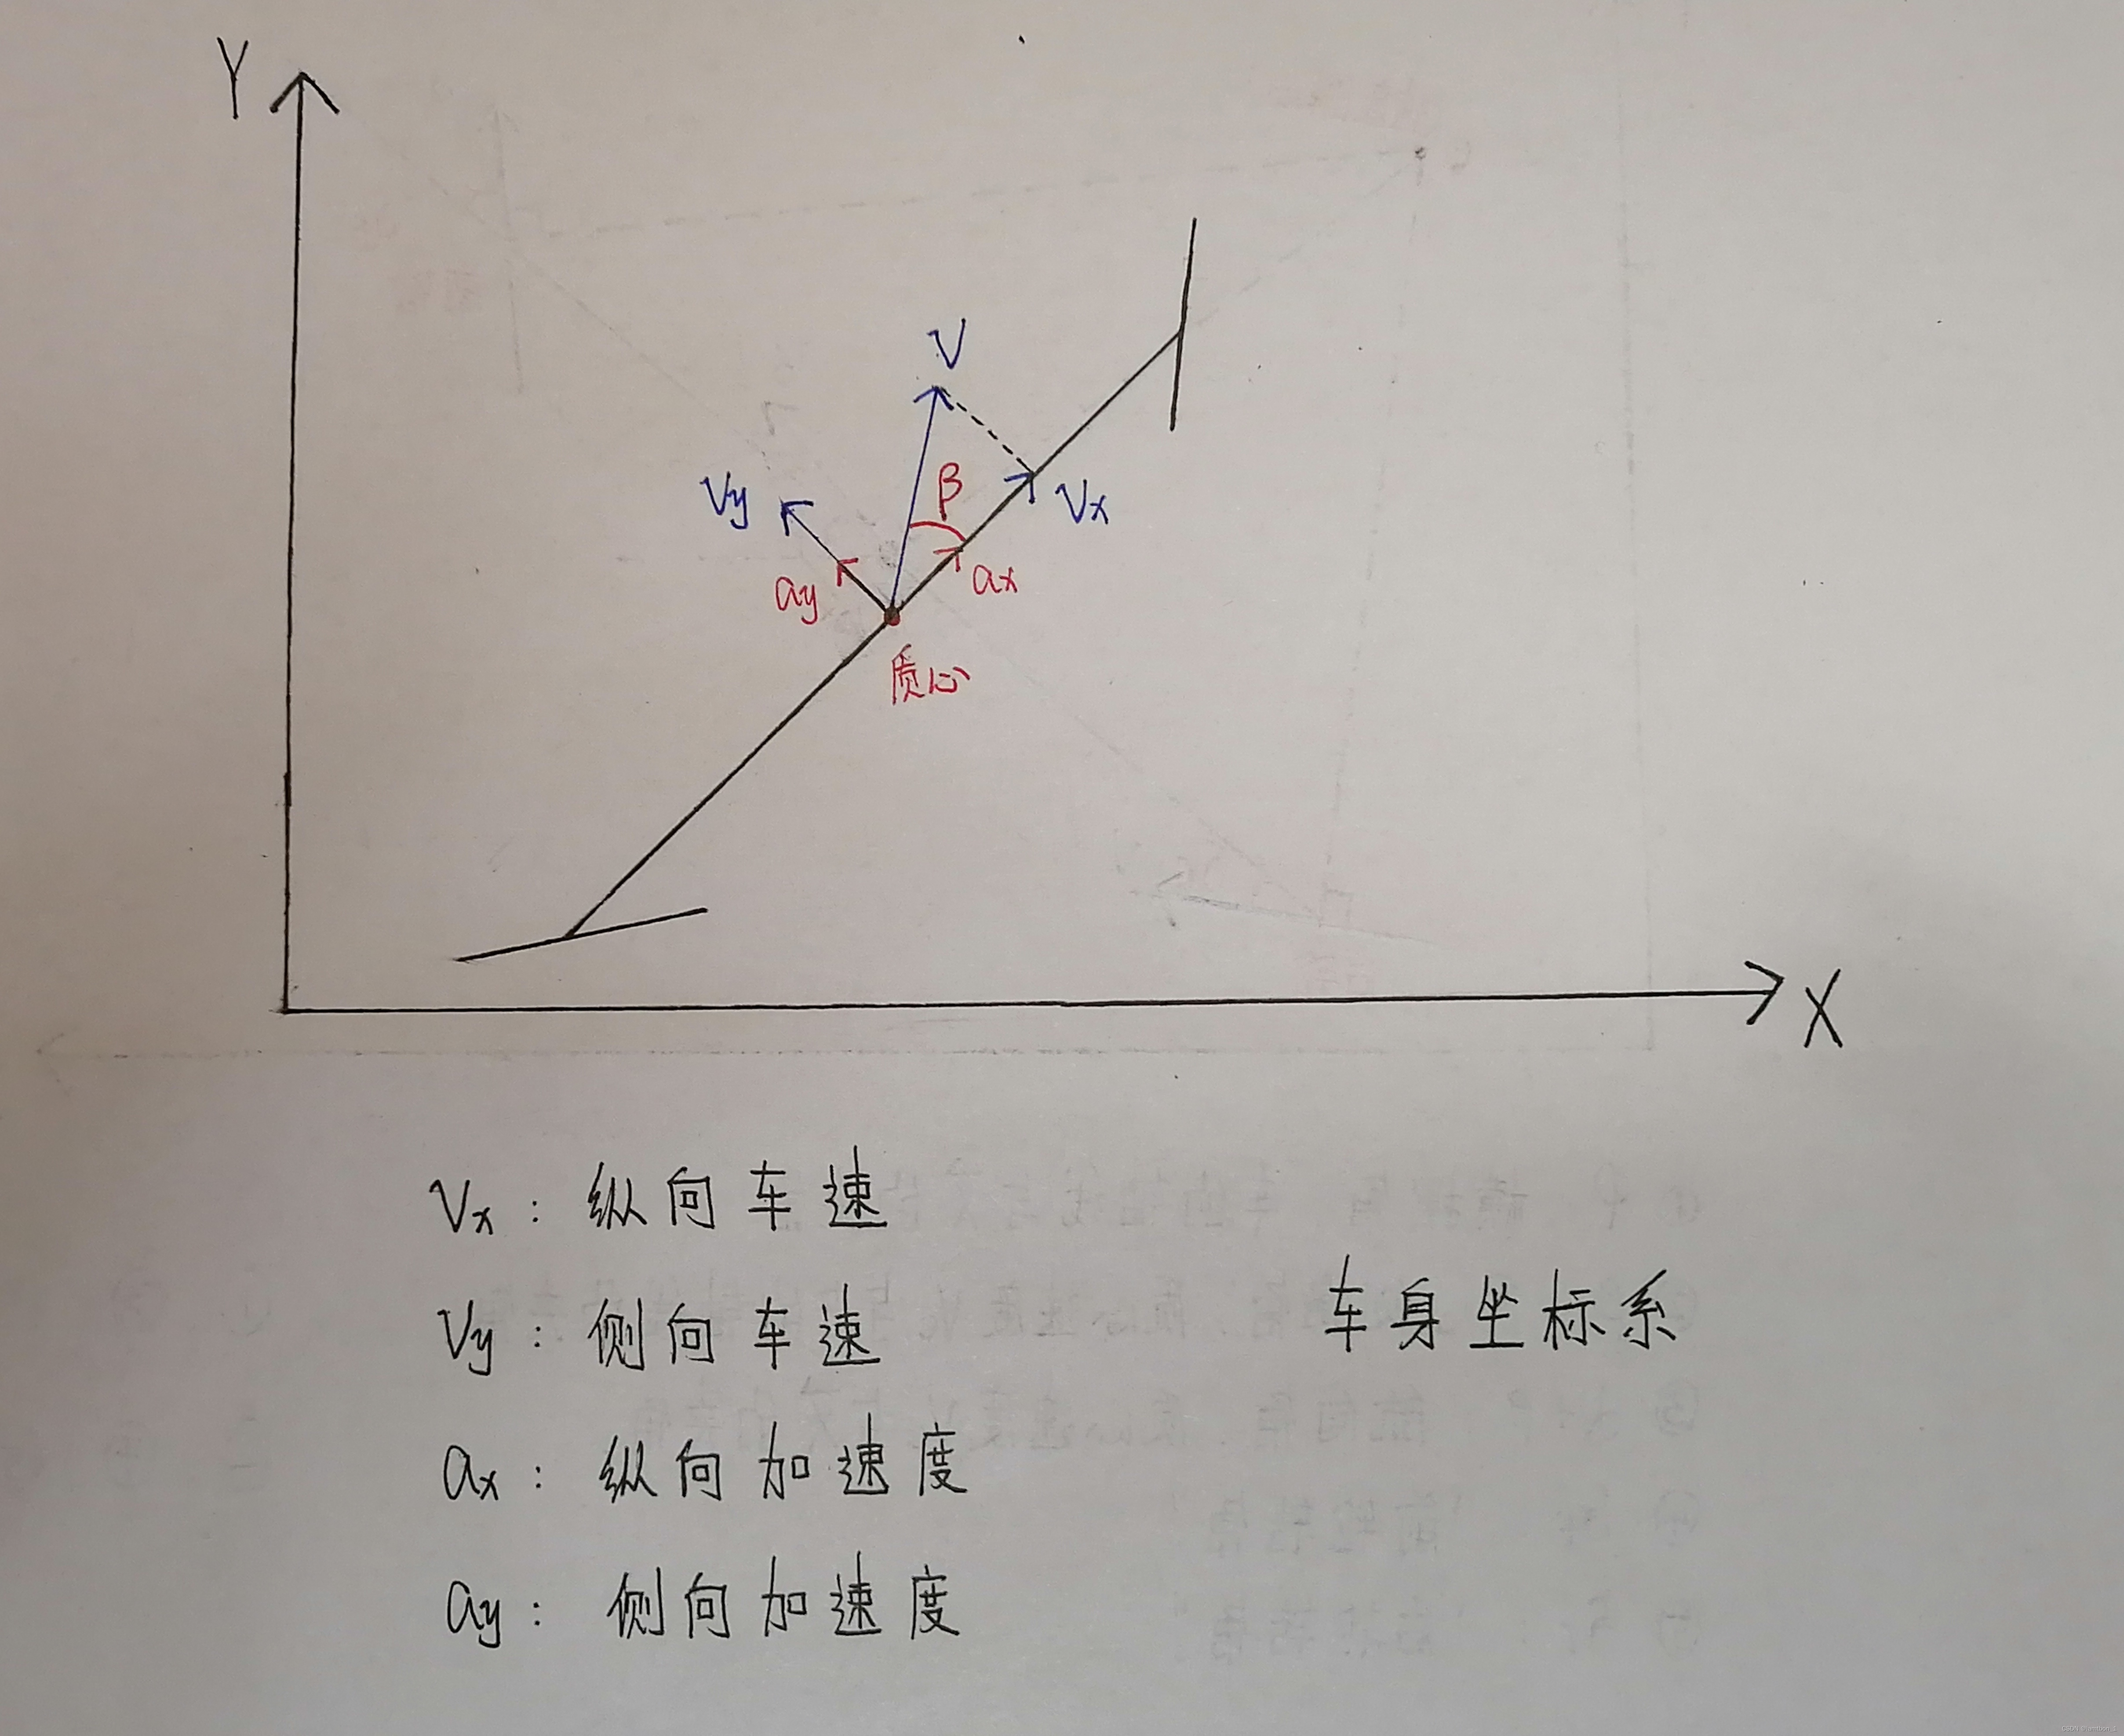 Y
V
β
Vy
Vx
ay
ax
质心
X
Vx：纵向车速
Vy：侧向车速
车身坐标系
ax：纵向加速度
ay：侧向加速度